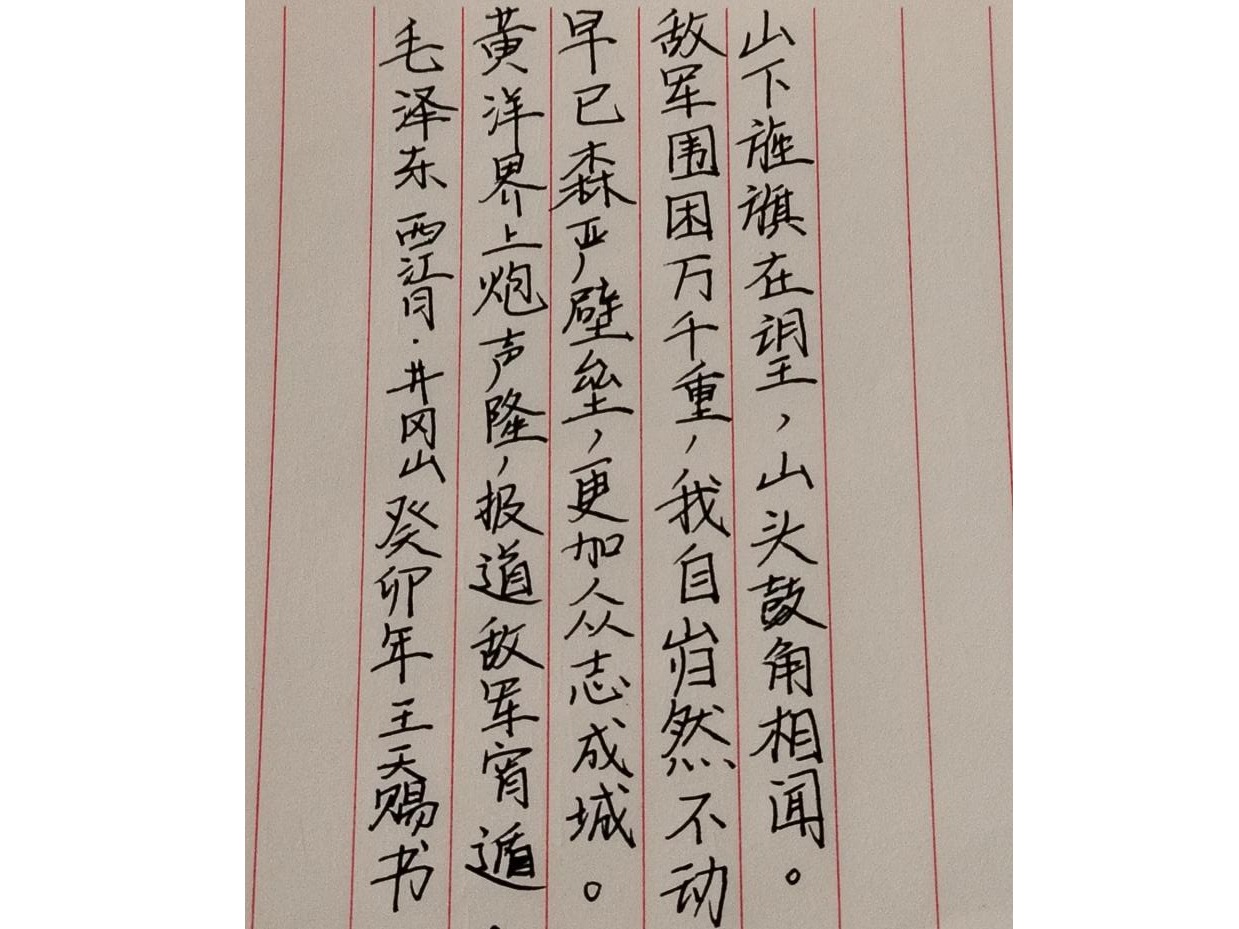 山下旌旗在望，山头鼓角相闻。
敌军围困万千重，我自岿然不动
早已森严壁垒，更加众志成城。
黄洋界上炮声隆，报道敌军宵遁.
毛泽东 西江月·井冈山 癸卯年王天赐书